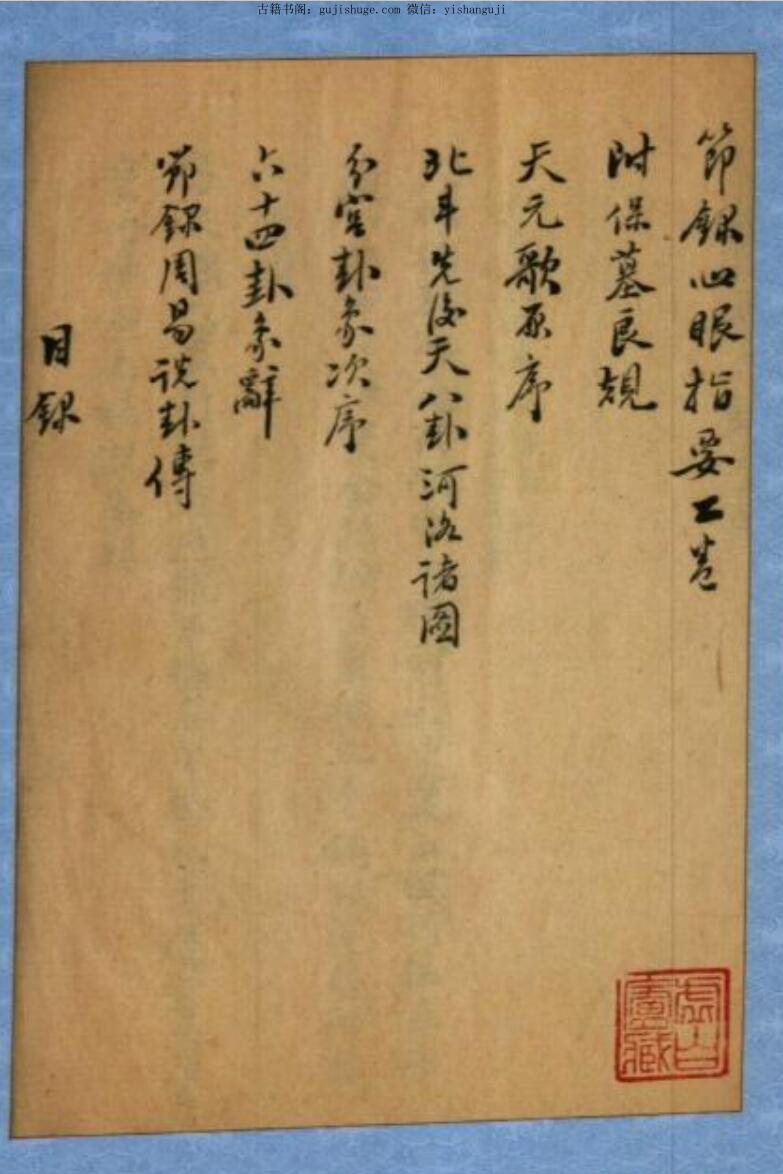 古籍书阁：gujishuge.com 微信：yishanguji
節錄心眼指要上卷
附保墓良規
天元歌原序
北斗先後天八卦河洛諸圖
分宮卦象次序
六十四卦象辭
節錄周易說卦傳
目錄
廬藏